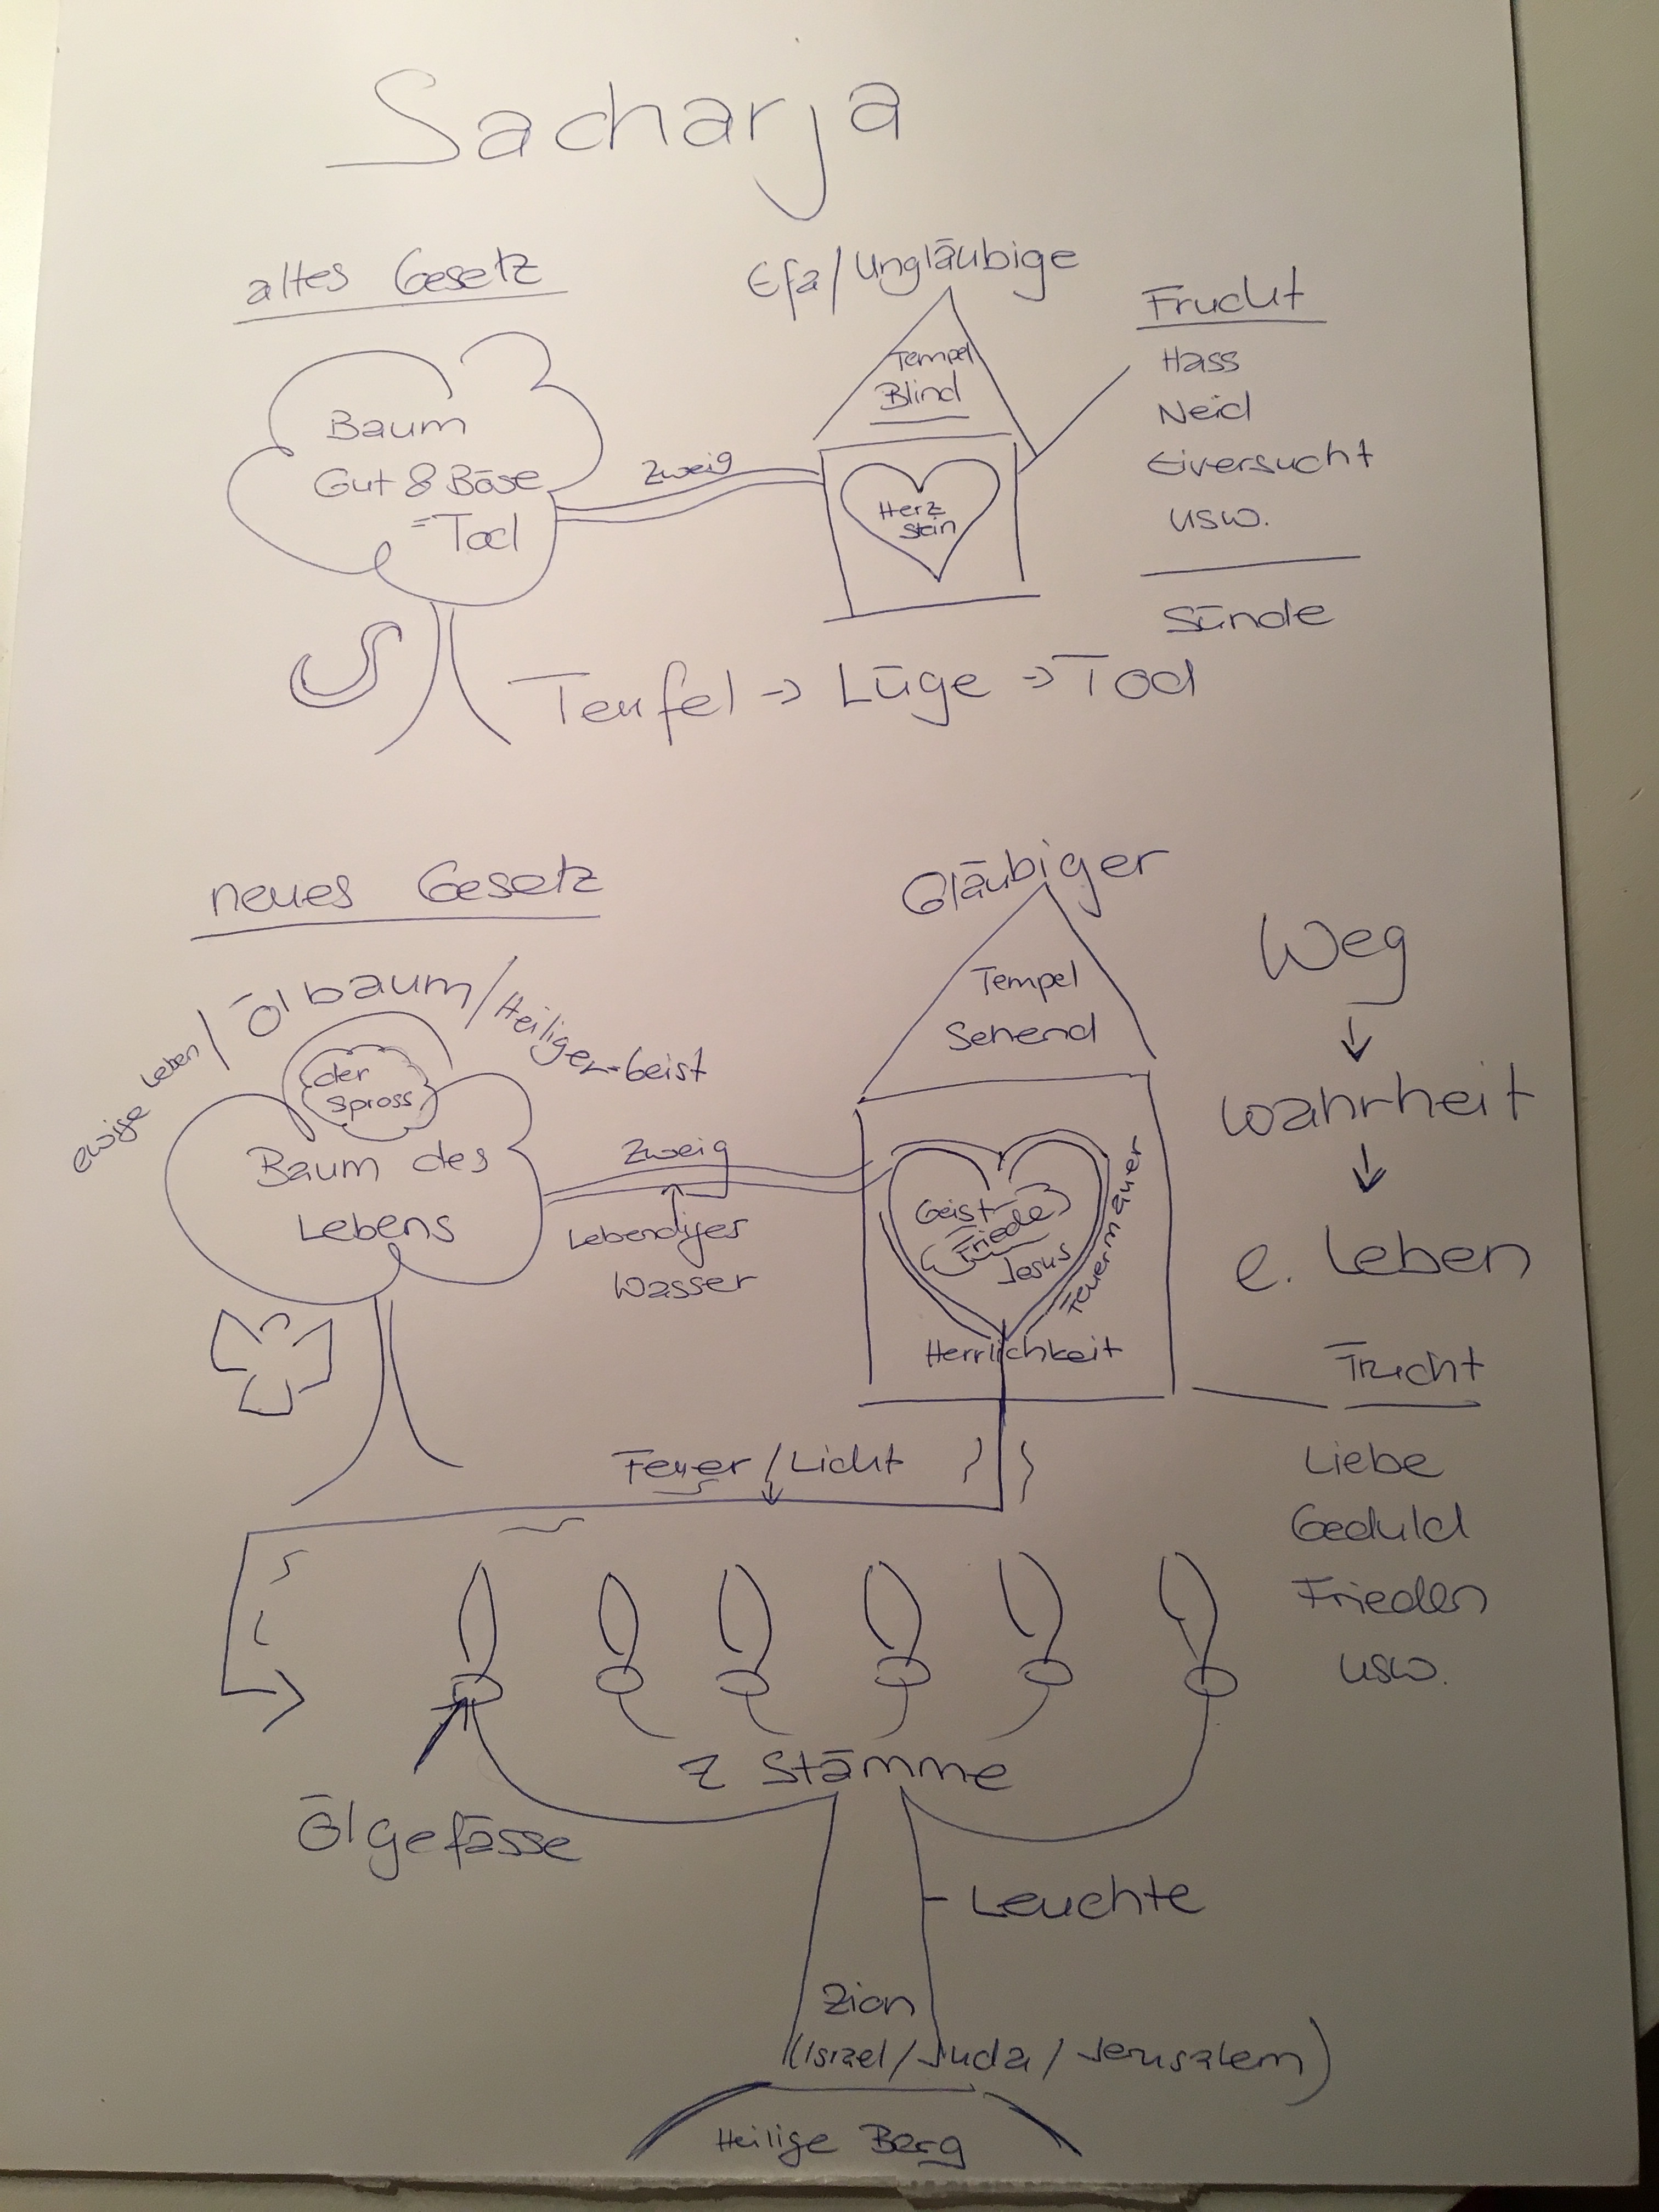 Sacharja
altes Gesetz
Efa/Ungläubige
Frucht
Tempel
Blind
Hass
Neid
Eiversucht
usw.
Sünde
Baum
Gut & Böse
=Tod
Zweig
Herz
Stein
Teufel → Lüge → Tod
neues Gesetz
Gläubiger
ewige Leben/Ölbaum/Heiliger-Geist
der
Spross
Baum des
Lebens
Zweig
Lebendiges
Wasser
Tempel
Sehend
Geist
Friede
Jesus
Feuermauer
Herrlichkeit
Weg
↓
Wahrheit
↓
e. Leben
Frucht
Liebe
Geduld
Frieden
usw.
Feuer/Licht
Z Stämme
Ölgefässe
Leuchte
Zion
(Israel/Juda/Jerusalem)
Heilige Berg